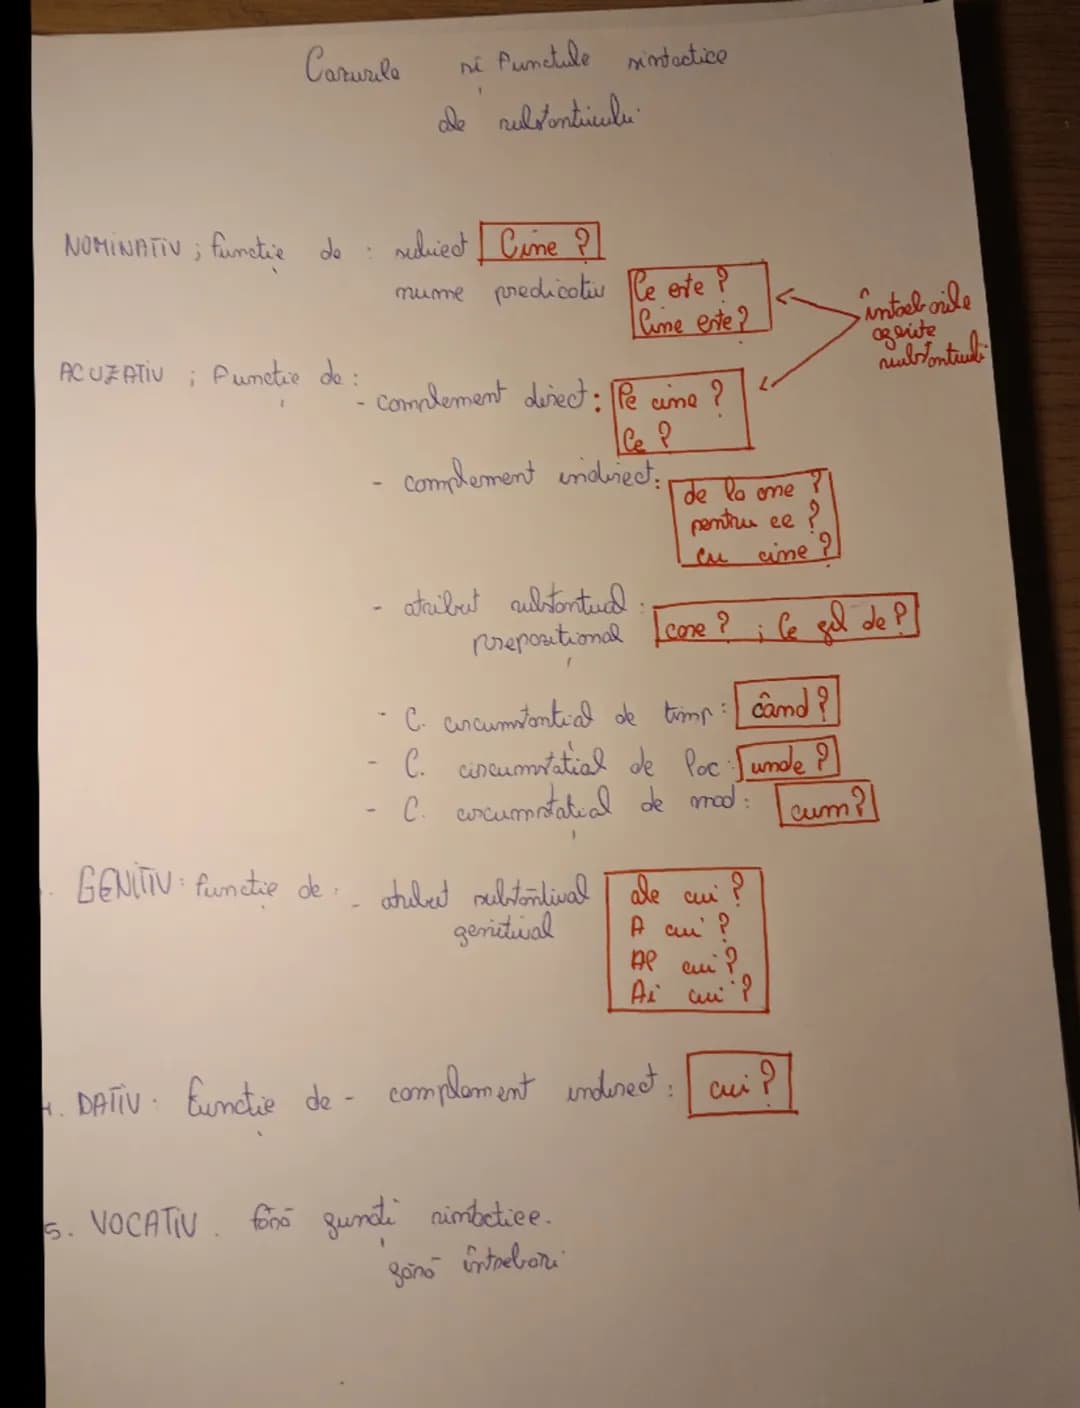 Cazurile și funcțiile sintactice
ale substantivului
NOMINATIV ; funcție de : subiect Cine ?
nume predicativ Ce este ?
Cine este ?
întrebările
ACUZATIV ; funcție de :
substantivului
- complement direct : Pe cine ?
Ce ?
- complement indirect :
de la cine ?
pentru ce ?
cu cine ?
- atribut substantival :
prepozițional care ? ; Ce fel de ?
- C. circumstanțial de timp : când ?
- C. circumstațial de loc : unde ?
- C. circumstațial de mod : cum ?
GENITIV : funcție de : - atribut substantival ale cui ?
genitival A cui ?
Al cui ?
Ai cui ?
4. DATIV : funcție de - complement indirect : cui ?
5. VOCATIV . fără funcți sintactice.
fără întrebări